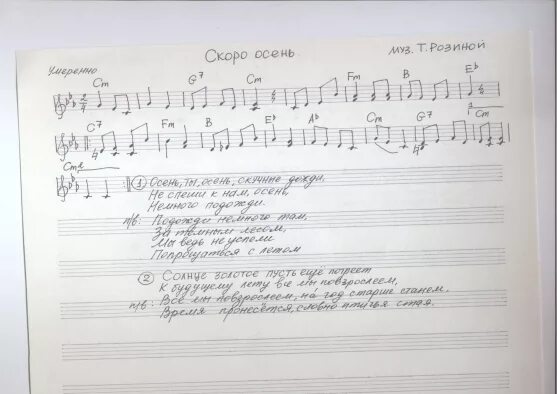 Скоро осень
муз. Т. Розиной
Умеренно
Cm G7 Cm Fm B Eb
2/4
C7 Fm B Eb Ab Cm G7 1. Cm
Cm 2.
1 Осень, ты, осень, скучные дожди.
Не спеши к нам, осень,
Немного подожди.
Пв: Подожди немного там,
За тёмным лесом,
Мы ведь не успели
Попрощаться с летом
2 Солнце золотое пусть ещё погреет
К будущему лету все мы повзрослеем,
пв: Все мы повзрослеем, на год старше станем,
Время пронесётся, словно птичья стая.